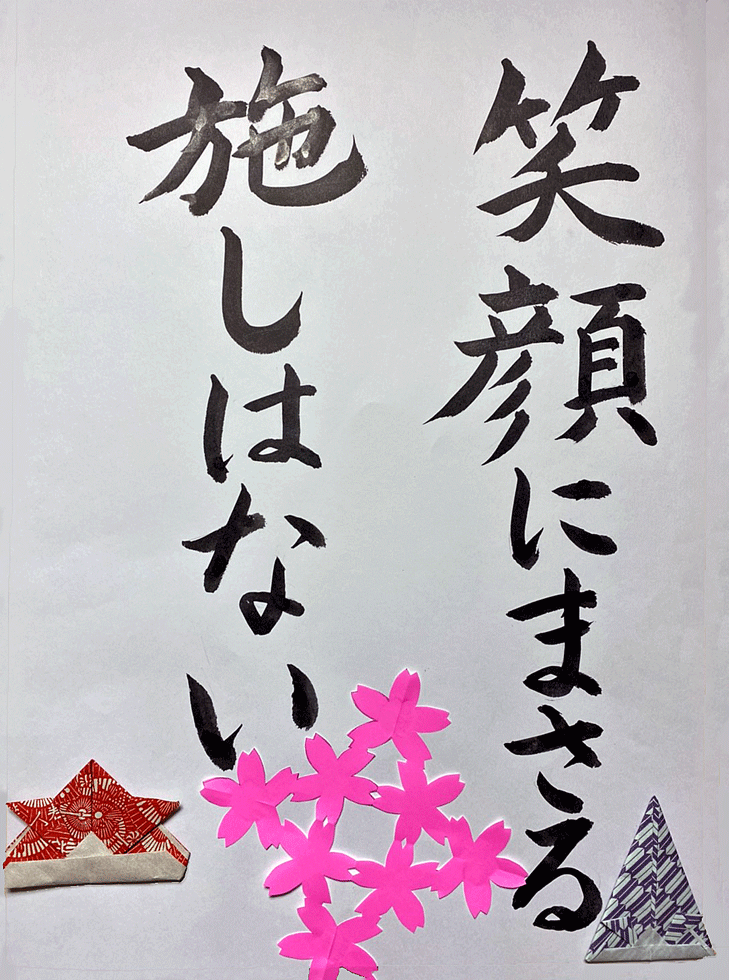 笑顔にまさる
施しはない